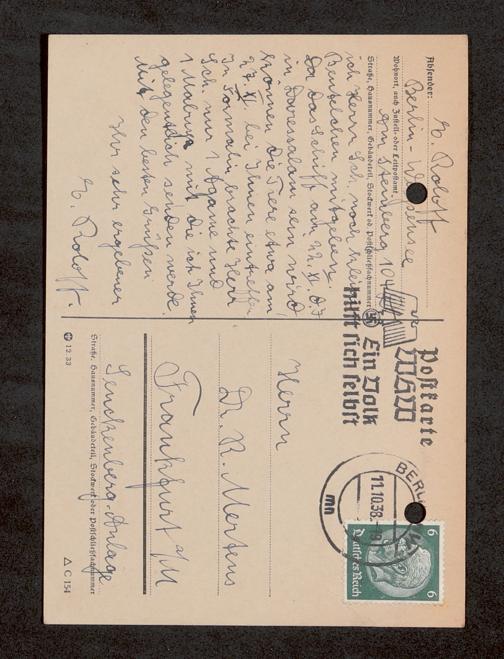 Absender: E. Roloff
Berlin-Weissensee
Wohnort, auch Zustell- oder Leitpostamt
Am Steinberg 104
Straße, Hausnummer, Gebäudeteil, Stockwerk od. Postschließfachnummer
ich Herrn Sch. noch
Beutelchen mitgeben.
Da das Schiff am 22. XI. d. J.
in Daressalam sein wird,
können die Tiere etwa am
27. XI. bei Ihnen eintreffen
In Formalin brachte Herr
Sch. nur 1 Agame und
1 Mabuya mit, die ich Ihnen
gelegentlich senden werde.
Mit den besten Grüßen
Ihr sehr ergebener
E. Roloff.
Postkarte
WHW
Ein Volk
hilft sich selbst
BERLIN
11.10.38
mn
6 6
Deutsches Reich
Herrn
Dr. R. Mertens
Frankfurt a/M
Senckenberg-Anlage
Straße, Hausnummer, Gebäudeteil, Stockwerk oder Postschließfachnummer
12. 33
△ C 154